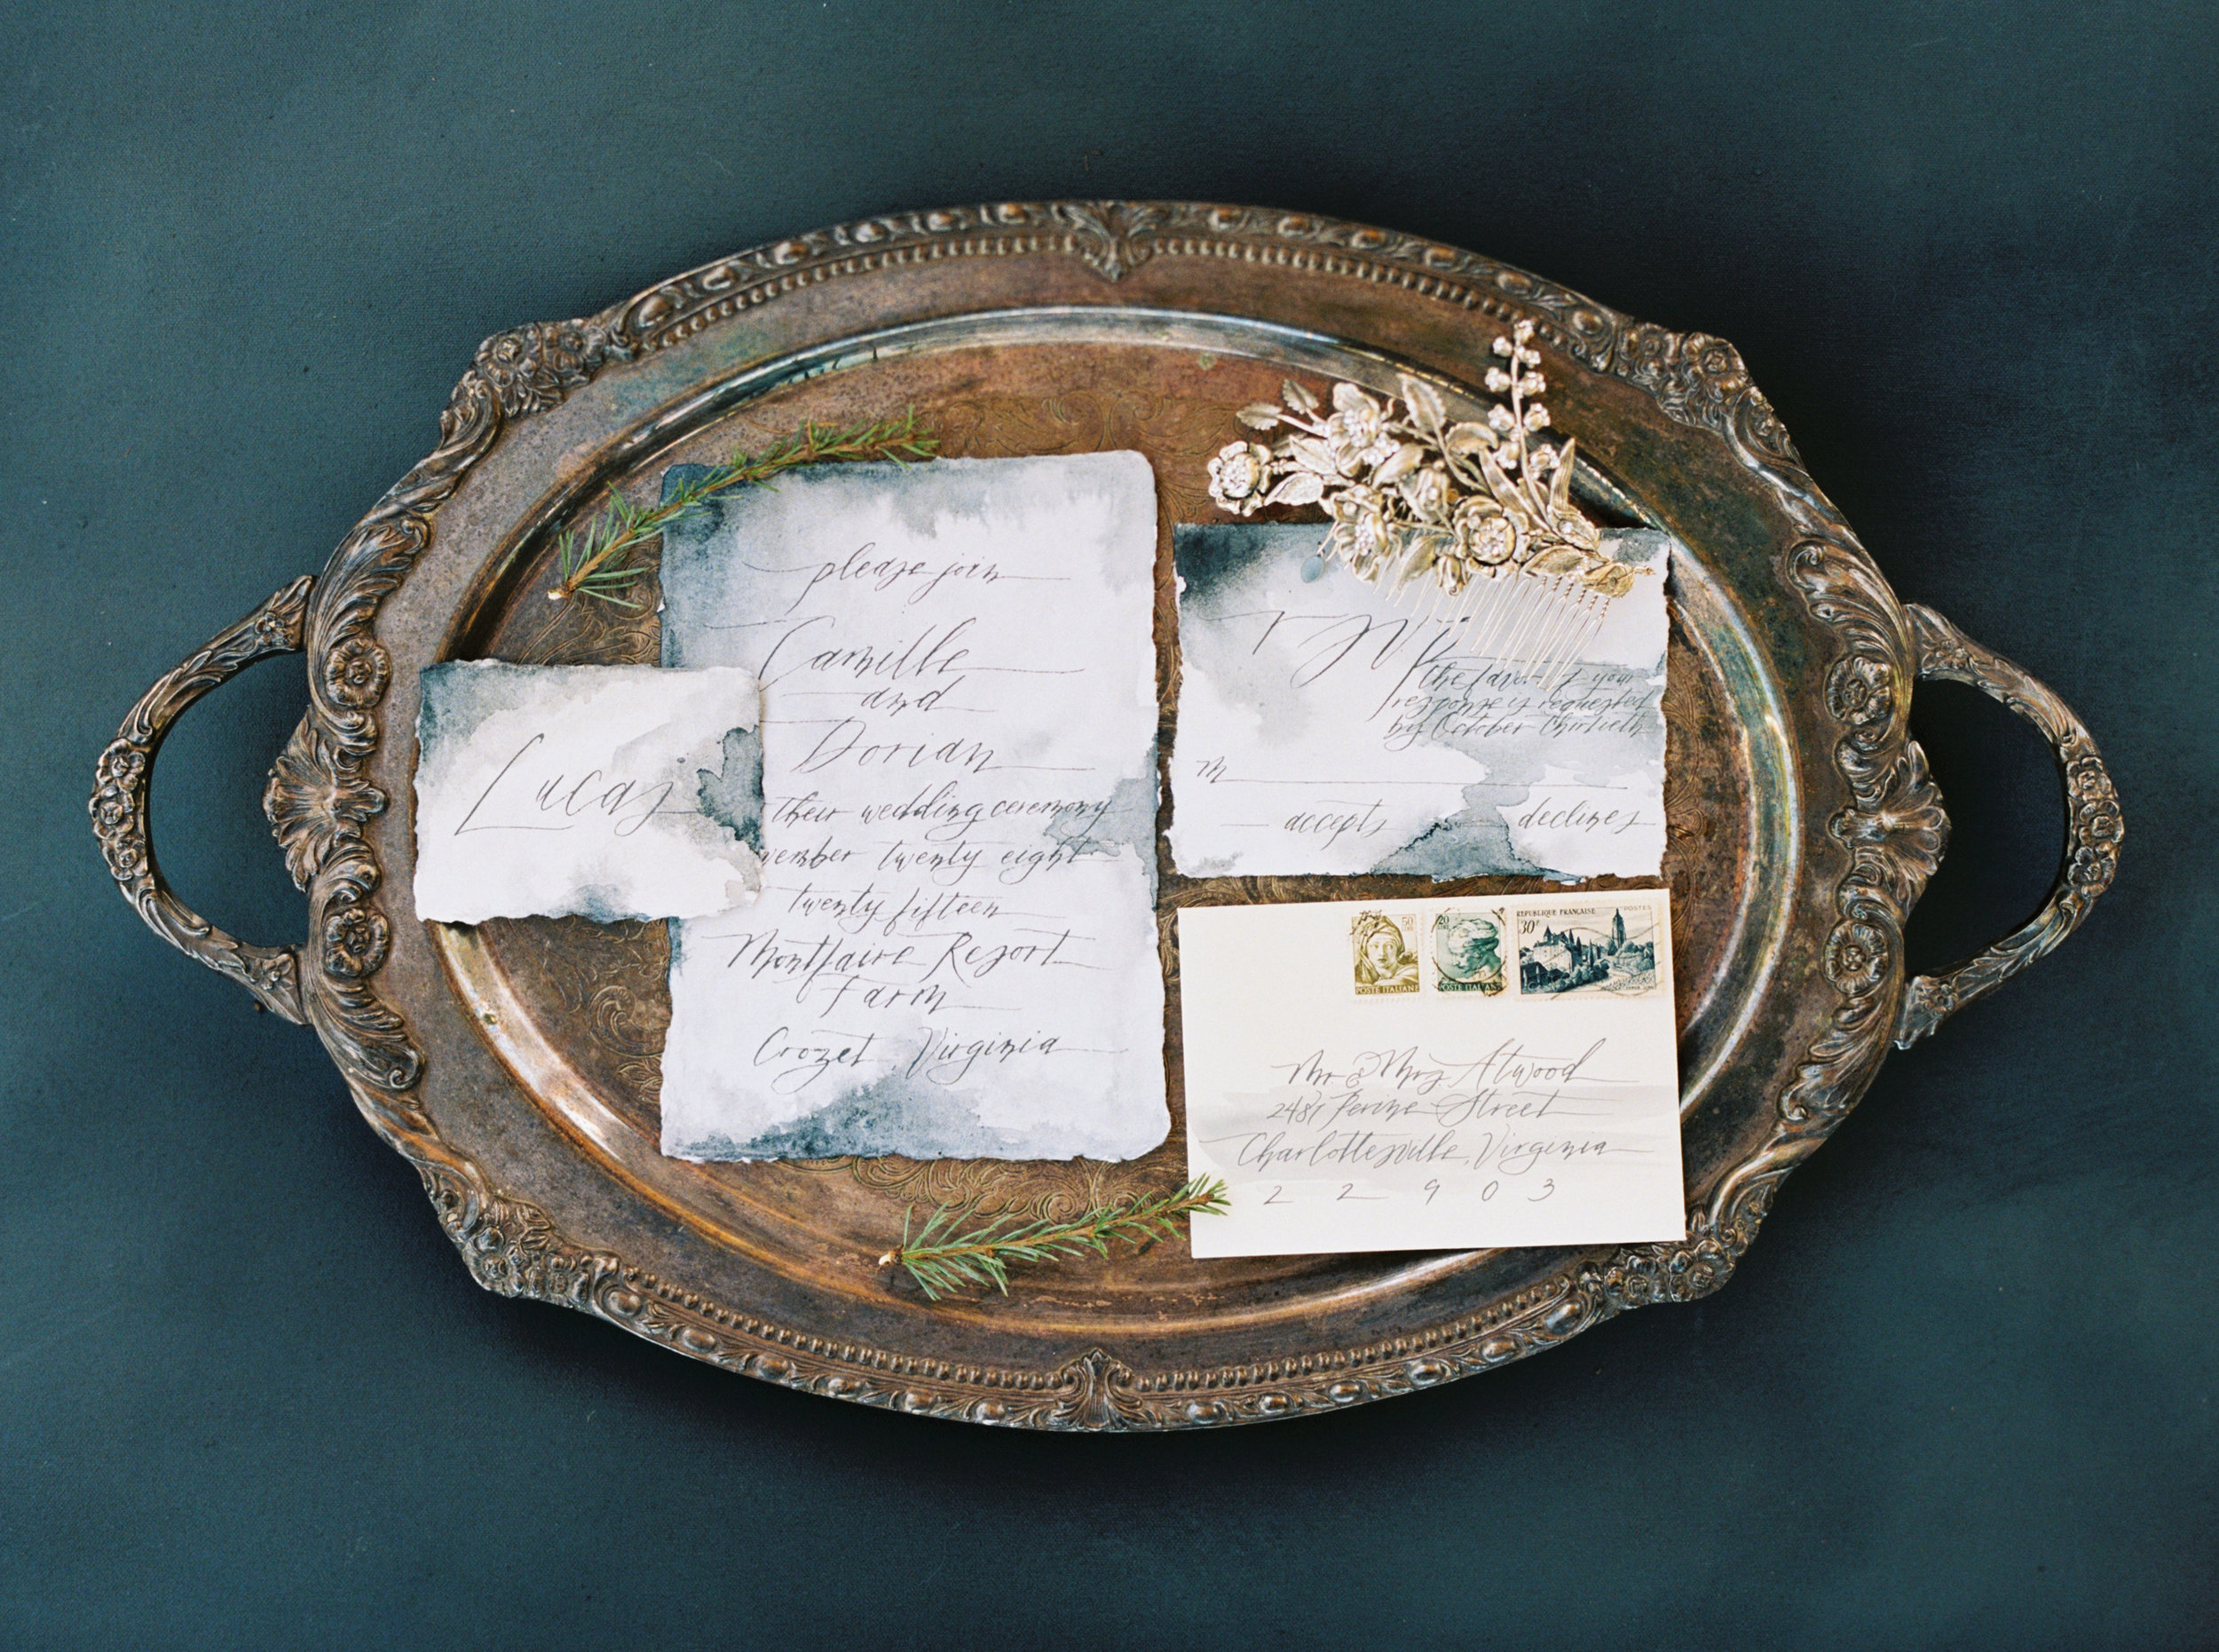 Lucas
please join
Camille
and
Dorian
their wedding ceremony
vember twenty eight
twenty fifteen
Montfaire Resort
Farm
Crozet, Virginia
rsvp
the favor of your
response is requested
by October thirtieth
m
accepts declines
50
POSTE ITALIANE
20
POSTE ITALIANE
REPUBLIQUE FRANÇAISE POSTES
30F
Mr & Mrs Atwood
2481 Perine Street
Charlottesville, Virginia
2 2 9 0 3